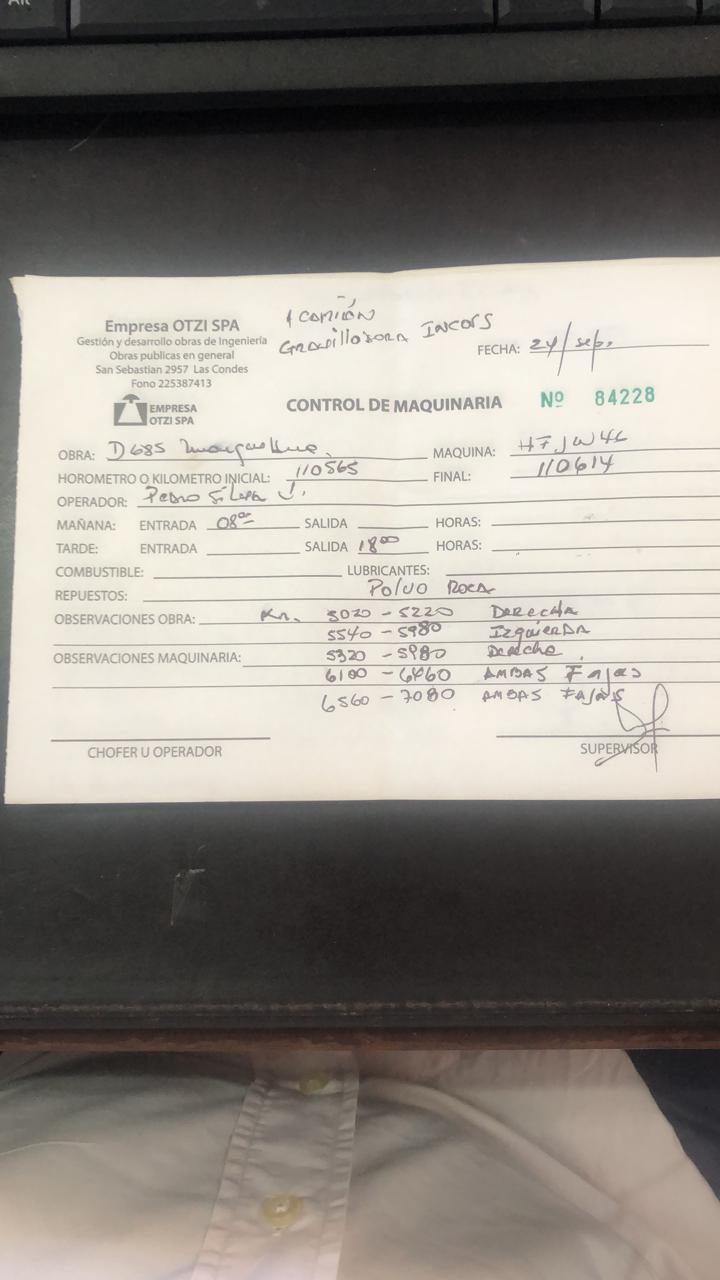 Empresa OTZI SPA
Gestión y desarrollo obras de Ingeniería
Obras publicas en general
San Sebastian 2957 Las Condes
Fono 225387413
EMPRESA
OTZI SPA
1 Camión
Gravilladora INCORS
FECHA: 24/sep.
CONTROL DE MAQUINARIA Nº 84228
OBRA: D685 MAQUINA: HFJW46
HOROMETRO O KILOMETRO INICIAL: 110565 FINAL: 110614
OPERADOR: Pedro Silva J.
MAÑANA: ENTRADA 08⁰⁰ SALIDA HORAS:
TARDE: ENTRADA SALIDA 18⁰⁰ HORAS:
COMBUSTIBLE: LUBRICANTES:
REPUESTOS: Polvo Roca
OBSERVACIONES OBRA: Km. 5020 - 5220 DERECHA
5540 - 5980 IzquierDA
OBSERVACIONES MAQUINARIA: 5320 - 5980 Derecha
6100 - 6460 AMBAS Fajas
6560 - 7080 AMBAS FAJAS
CHOFER U OPERADOR SUPERVISOR